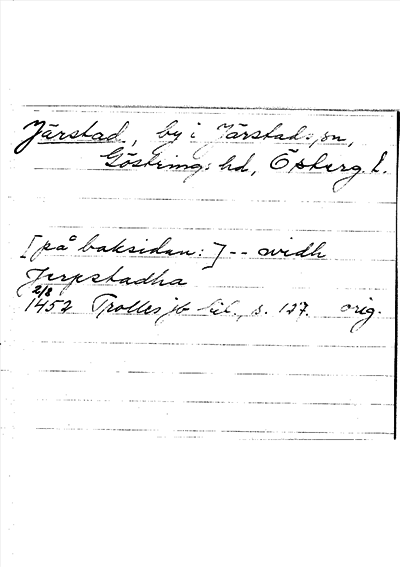 Järstad, by i Järstads sn,
Göstrings hd, Österg. l.
[på baksidan:] -- widh
Jerpstadha
2/8
1452 Trolles jb bil., s. 127. orig.